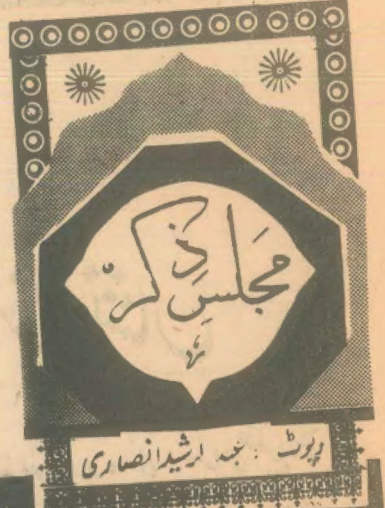 مجلسِ ذکر
رپوٹ : عبد الرشید انصاری